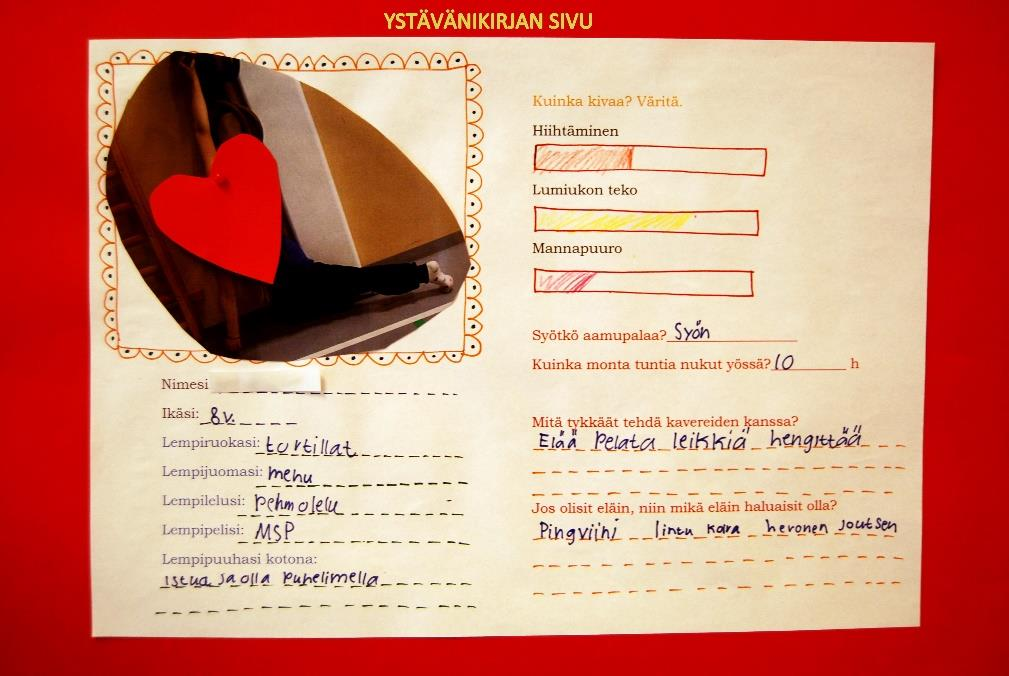 YSTÄVÄNIKIRJAN SIVU
Nimesi
Ikäsi: 8v.
Lempiruokasi: tortillat
Lempijuomasi: mehu
Lempilelusi: Pehmolelu
Lempipelisi: MSP
Lempipuuhasi kotona:
istua ja olla Puhelimella
Kuinka kivaa? Väritä.
Hiihtäminen
Lumiukon teko
Mannapuuro
Syötkö aamupalaa? Syön
Kuinka monta tuntia nukut yössä? 10 h
Mitä tykkäät tehdä kavereiden kanssa?
Elää Pelata leikkiä hengittää
Jos olisit eläin, niin mikä eläin haluaisit olla?
Pingviini lintu koira hevonen Joutsen